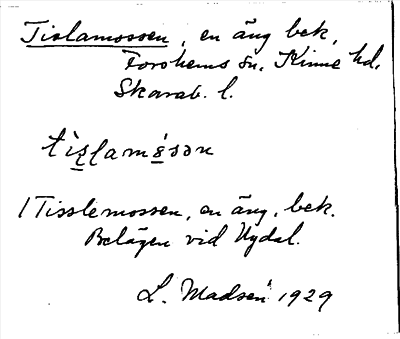 Tislamossen, en äng bek,
Forshems sn. Kinne hd.
Skarab. l.
tìs̲lamós̲sən
/Tisslemossen, en äng, bek.
Belägen vid Nydal.
L. Madsén 1929